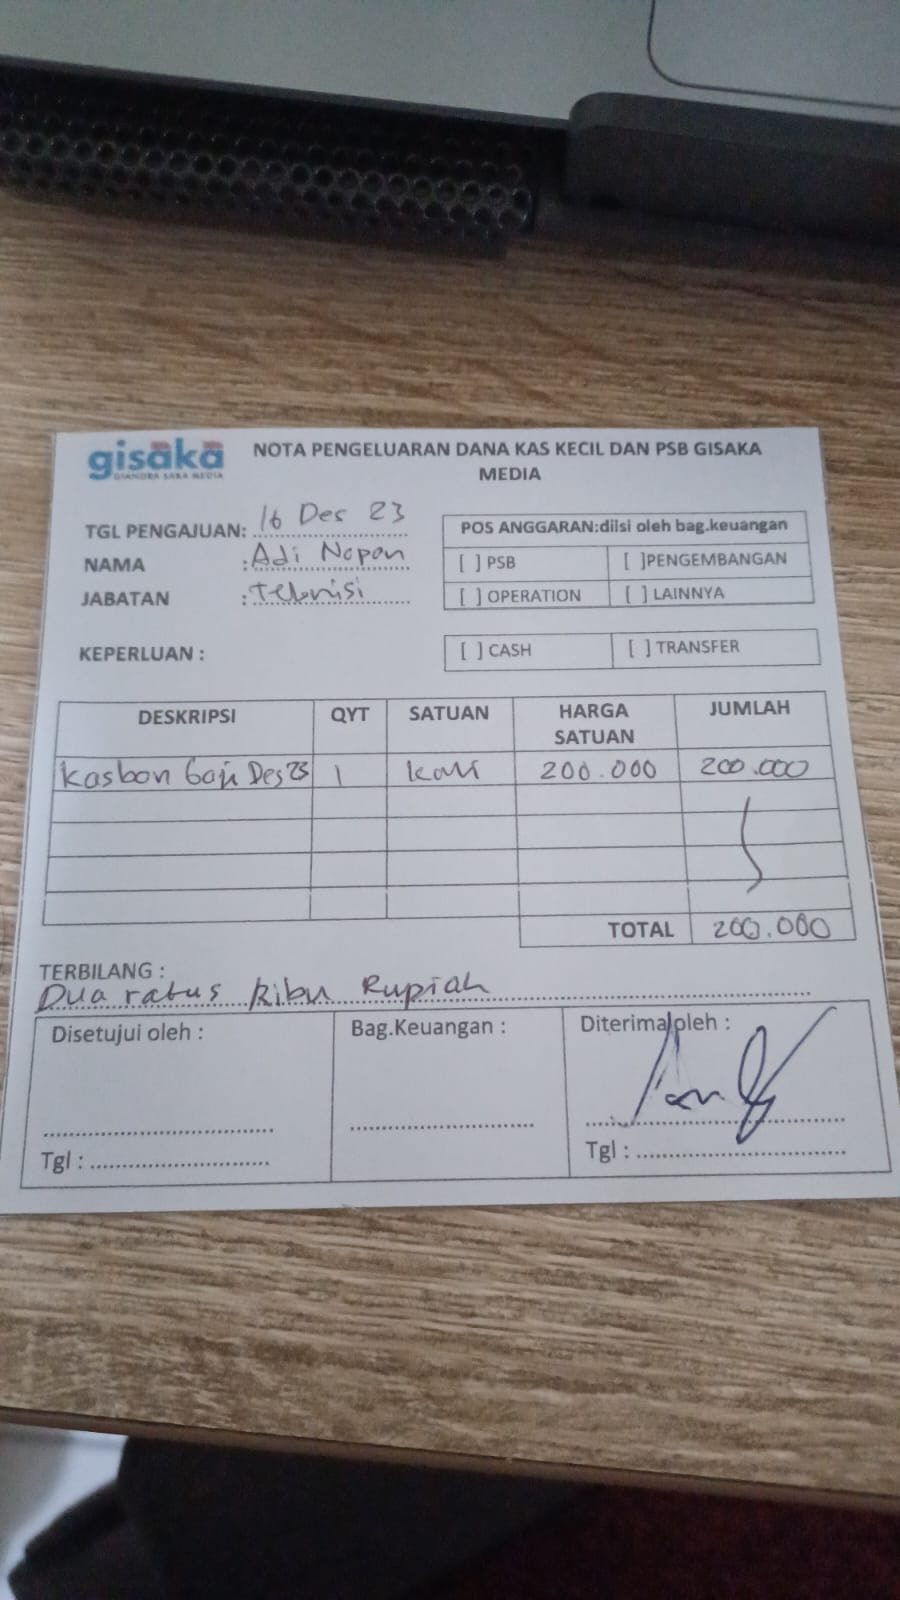 gisaka
GIANDRA SAKA MEDIA
NOTA PENGELUARAN DANA KAS KECIL DAN PSB GISAKA
MEDIA
TGL PENGAJUAN: 16 Des 23
NAMA : Adi Nopan
JABATAN : Teknisi
POS ANGGARAN:diisi oleh bag.keuangan
[ ] PSB [ ]PENGEMBANGAN
[ ] OPERATION [ ] LAINNYA
KEPERLUAN : [ ] CASH [ ] TRANSFER
DESKRIPSI QYT SATUAN HARGA SATUAN JUMLAH
Kasbon Gaji Des 23 1 kali 200.000 200.000
TOTAL 200.000
TERBILANG :
Dua ratus Ribu Rupiah
Disetujui oleh : Bag.Keuangan : Diterima oleh :
Tgl : Tgl :